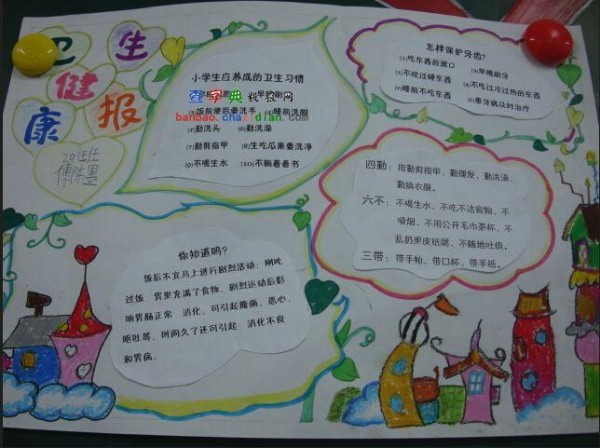 卫生
健
康报
小学生应养成的卫生习惯
查字典板报网
banbao.chazidian.com
(4)睡前洗脚
(5)勤洗头 (6)勤洗澡
(7)勤剪指甲 (8)生吃瓜果要洗净
(9)不喝生水 (10)不躺着看书
怎样保护牙齿?
(1)吃东西后漱口 (2)早晚刷牙
(3)不咬过硬东西 (4)不吃过冷过热的东西
(5)睡前不吃东西 (6)患牙病及时治疗
四勤:指勤剪指甲、勤理发、勤洗澡、
勤换衣服。
六不:不喝生水、不吃不洁食物、不
吸烟、不用公共毛巾茶杯、不
乱扔果皮纸屑、不随地吐痰。
三带:带手帕、带口杯、带手纸。
你知道吗?
饭后不宜马上进行剧烈活动:刚吃
过饭,胃里充满了食物,剧烈运动后影
响胃肠正常 消化、可引起腹痛、恶心、
呕吐等,时间久了还可引起 消化不良
和胃病。